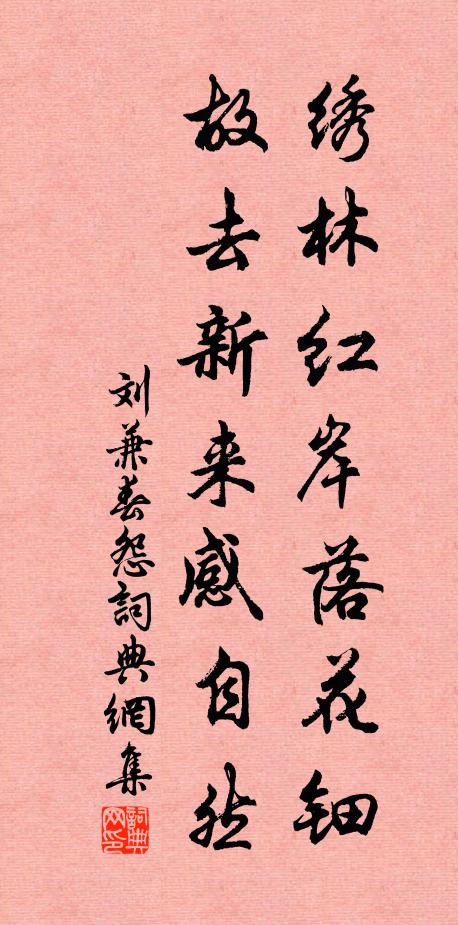 绣林红岸落花钿
故去新来感自然
刘兼春怨词典網集
詞典网印